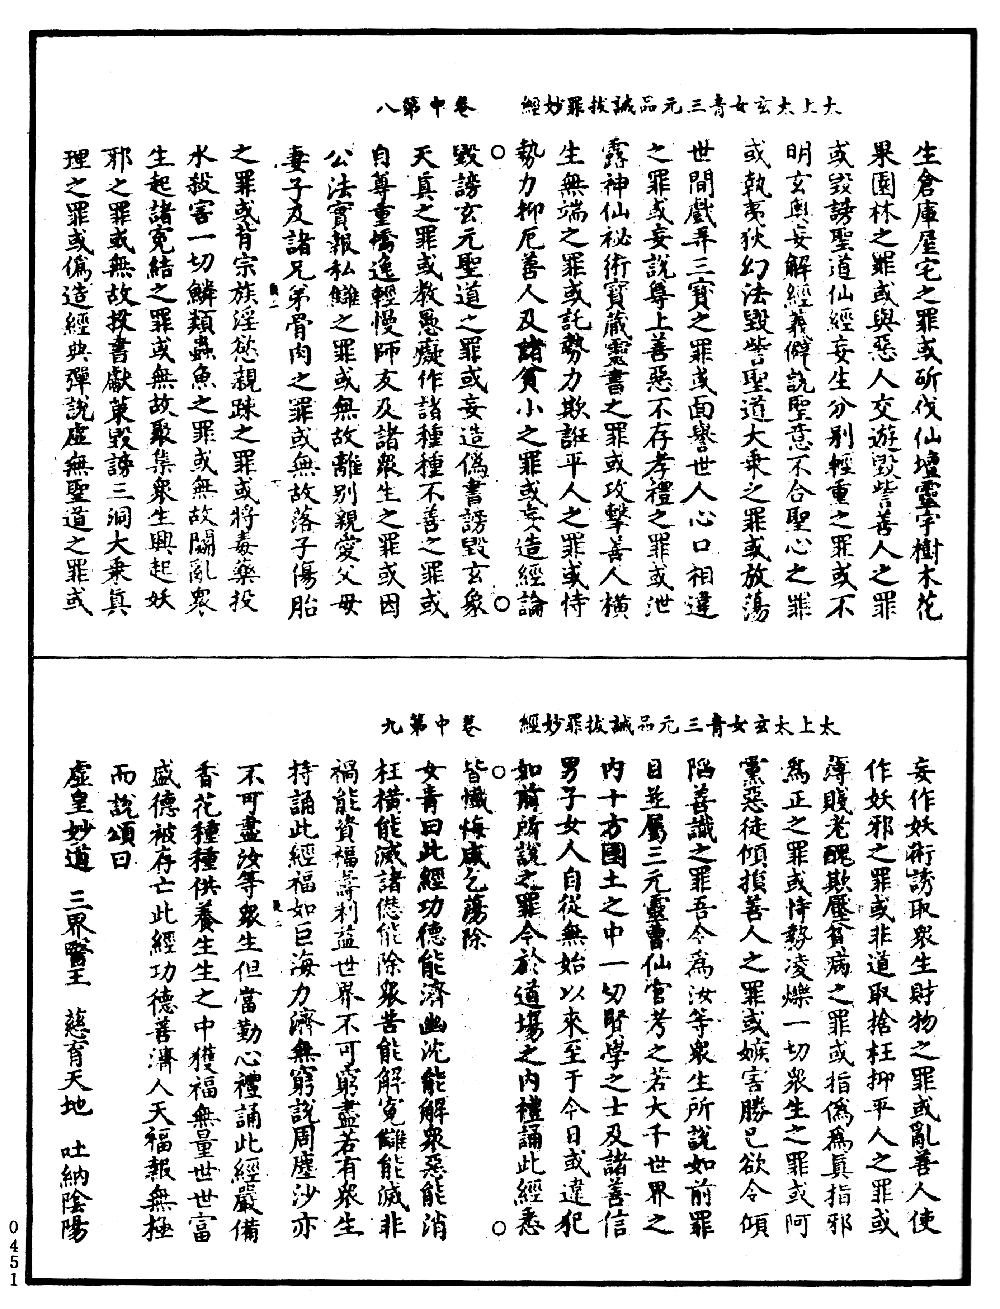 太上太玄女青三元品誡拔罪妙經　卷中第八
生倉庫屋宅之罪或斫伐仙壇靈宇樹木花
果園林之罪或與惡人交遊毀訾善人之罪
或毀謗聖道仙經妄生分別輕重之罪或不
明玄奧妄解經義僻說聖意不合聖心之罪
或執夷狄幻法毀訾聖道大乘之罪或放蕩
世間戲弄三寶之罪或面譽世人心口相違
之罪或妄說尊上善惡不存孝禮之罪或泄
露神仙祕術寶藏靈書之罪或攻擊善人橫
生無端之罪或託勢力欺誑平人之罪或恃
勢力抑厄善人及諸貧小之罪或妄造經論
毀謗玄元聖道之罪或妄造偽書謗毀玄象
天真之罪或教愚癡作諸種種不善之罪或
自尊重憍逸輕慢師友及諸眾生之罪或因
公法實報私讎之罪或無故離別親愛父母
妻子及諸兄弟骨肉之罪或無故落子傷胎
之罪或背宗族淫慾親踈之罪或將毒藥投
水殺害一切鱗類蟲魚之罪或無故鬬亂眾
生起諸冤結之罪或無故聚集眾生興起妖
邪之罪或無故投書獻菓毀謗三洞大乘真
理之罪或偽造經典彈說虛無聖道之罪或
太上太玄女青三元品誡拔罪妙經　卷中第九
妄作妖術誘取眾生財物之罪或亂善人使
作妖邪之罪或非道取捨枉抑平人之罪或
薄賤老醜欺壓貧病之罪或指偽為真指邪
為正之罪或恃勢凌爍一切眾生之罪或阿
黨惡徒傾損善人之罪或嫉害勝己欲令傾
陷善識之罪吾今為汝等眾生所說如前罪
目並屬三元靈曹仙官考之若大千世界之
內十方國土之中一切賢學之士及諸善信
男子女人自從無始以來至于今日或違犯
如前所說之罪今於道場之內禮誦此經悉
皆懺悔咸乞蕩除
女青曰此經功德能濟幽沈能解眾惡能消
枉橫能滅諸愆能除眾苦能解冤讎能滅非
禍能資福壽利益世界不可窮盡若有眾生
持誦此經福如巨海力濟無窮說周塵沙亦
不可盡汝等眾生但當勤心禮誦此經嚴備
香花種種供養生生之中獲福無量世世富
盛德被存亡此經功德善濟人天福報無極
而說頌曰
虛皇妙道　三界醫王　慈育天地　吐納陰陽
0451